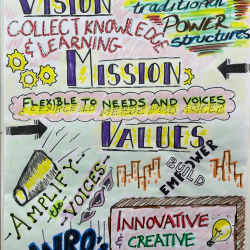 VISION
traditional
POWER
structures
COLLECT KNOWLEDGE
& LEARNING
MISSION
FLEXIBLE TO NEEDS AND VOICES
VALUES
AMPLIFY
the
VOICES
BUILD
EMPOWER
INNOVATIVE
& CREATIVE
WRO's